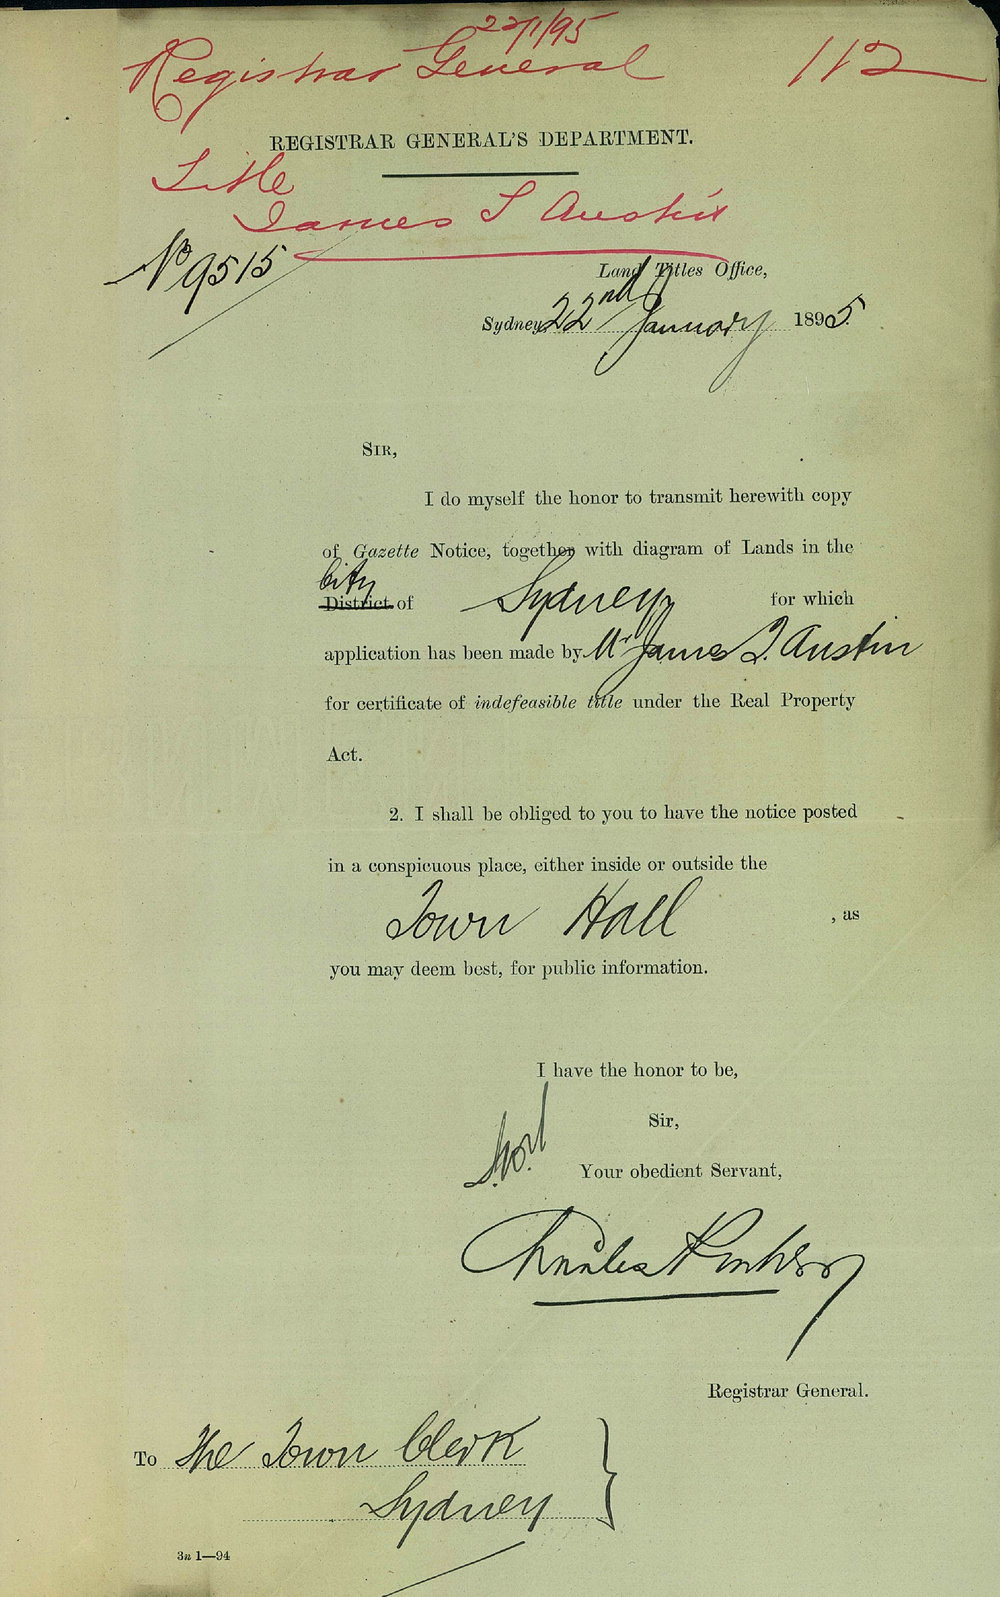 22/1/95
Registrar General 112
REGISTRAR GENERAL'S DEPARTMENT.
Title
James T Austin
No 9515
Land Titles Office,
Sydney 22nd January 1895.
SIR,
I do myself the honor to transmit herewith copy
of Gazette Notice, together with diagram of Lands in the
City
District of Sydney for which
application has been made by Mr James T. Austin
for certificate of indefeasible title under the Real Property
Act.
2. I shall be obliged to you to have the notice posted
in a conspicuous place, either inside or outside the
Town Hall , as
you may deem best, for public information.
I have the honor to be,
Sir,
Your obedient Servant,
Charles
Registrar General.
To The Town Clerk
Sydney
3n 1—94